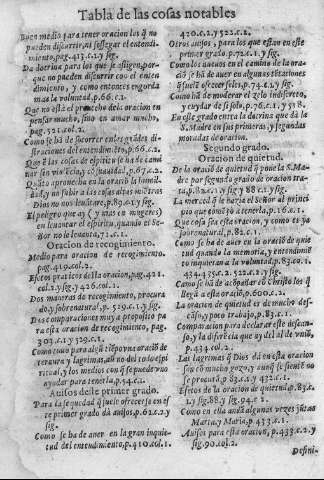 Tabla de las cosas notables
Buen medio para tener oracion los q̃ no
pueden discurrir, ni sossegar el entendi-
miento, pag. 413. c. 1. y sig.
Da dotrina para los que se afligen, por-
que no pueden discurrir con el enten
dimiento, y como entonces engorda
mas la voluntad. p. 66. c. 1.
Que no està el prouecho de la oracion en
pensar mucho, sino en amar mucho,
pag. 521. col. 2.
Como se ha de socorrer en las grãdes dis
traciones del entendimiẽto, p. 66. c. 2.
Que à las cosas de espiritu se ha de cami
nar sin violẽcia, con suauidad, p. 67. c. 2.
Quãto aprouecha en la oraciõ la humil-
dad, y no subir a las cosas altas mientras
Dios no nos leuãtare, p. 89. c. 1. y sig.
El peligro que ay (y mas en mugeres)
en leuantar el espiritu, quando el Se-
ñor no le leuanta, 71. c. 1.
Oracion de recogimiento.
Medio para oracion de recogimiento,
pag. 419. col. 2.
Efetos grandes de la oracion, pag. 421.
col. 1. y sig. y 426. col. 2.
Dos maneras de recogimiento, procura
do, y sobrenatural. p. 519. c. 1. y sig.
Dos comparaciones muy a proposito pa
ra esta oracion de recogimiento, pag.
303. c. 1. y 519. c. 1.
Como como para algũ tiẽpo vna oraciõ de
ternura y lagrimas, aũ no del todo espi
ritual, y los medios con q̃ se puede vno
ayudar para tenerla, p. 54. c. 1.
Auisos deste primer grado.
Para la sequedad q̃ suele ofrecerse en es
te primer grado dà auisos, p. 62. c. 2. y
sig.
Como se ha de auer en la gran inquie-
tud del entendimiento, p. 410. col. 1.
420. c. 1. y 522. c. 1.
Otros auisos, para los que estan en este
primer grado, p. 72. c. 1. y sig.
Como los nueuos en el camino de la ora-
ciõ se hã de auer en algunas tẽtaciones
q̃ suele ofrecerseles, p. 74. c. 1. y sig.
Como hã de moderar el zelo indiscreto,
y cuydar de si solo, p. 76. c. 1. y 518.
En este grado entra la dotrina que dà la
S. Madre en sus primeras, y segundas
moradas de oracion.
Segundo grado.
Oracion de quietud.
De la oraciõ de quietud q̃ pone la S. Ma-
dre por segundo grado de oracion tra-
ta, p. 82. c. 1. y sig. y 88. c. 1. y sig.
La merced q̃ le hazia el Señor al princi
pio que començò a tenerla, p. 16. c. 1.
Que cosa sea esta oracion, y como es ya
sobrenatural, p. 82. c. 1.
Como se ha de auer en la oraciõ de quie
tud quando la memoria, y entendimiẽ
to inquietan a la voluntad, p. 83. co. 1.
434. 435. c. 2. 522. c. 2. y sig.
Como se hã de acompañar cõ Christo los q̃
llegã a esta oraciõ, p. 600. c. 2.
La oracion de quietud es de mucho des-
cãso, y poco trabajo, p. 83. c. 1.
Comparacion para declarar este descan-
so, y la diferẽcia que ay del al de vniõ,
p. 434. col. 2.
Las lagrimas q̃ Dios dà en esta oracion
son cõ mucho gozo, y aunq̃ se siente no
se procura, p. 83. c. 2. y 432. c. 2.
Efetos de la oracion de quietud, p. 83. c.
1. y sig. 88. y sig. 94. c. 2.
Como en ella andã algunas vezes jũtas
Marta, y Maria, p. 433. c. 1.
Auisos para esta oraciõ, p. 433. c. 2. y
sig. 90. col. 2.
Desini-